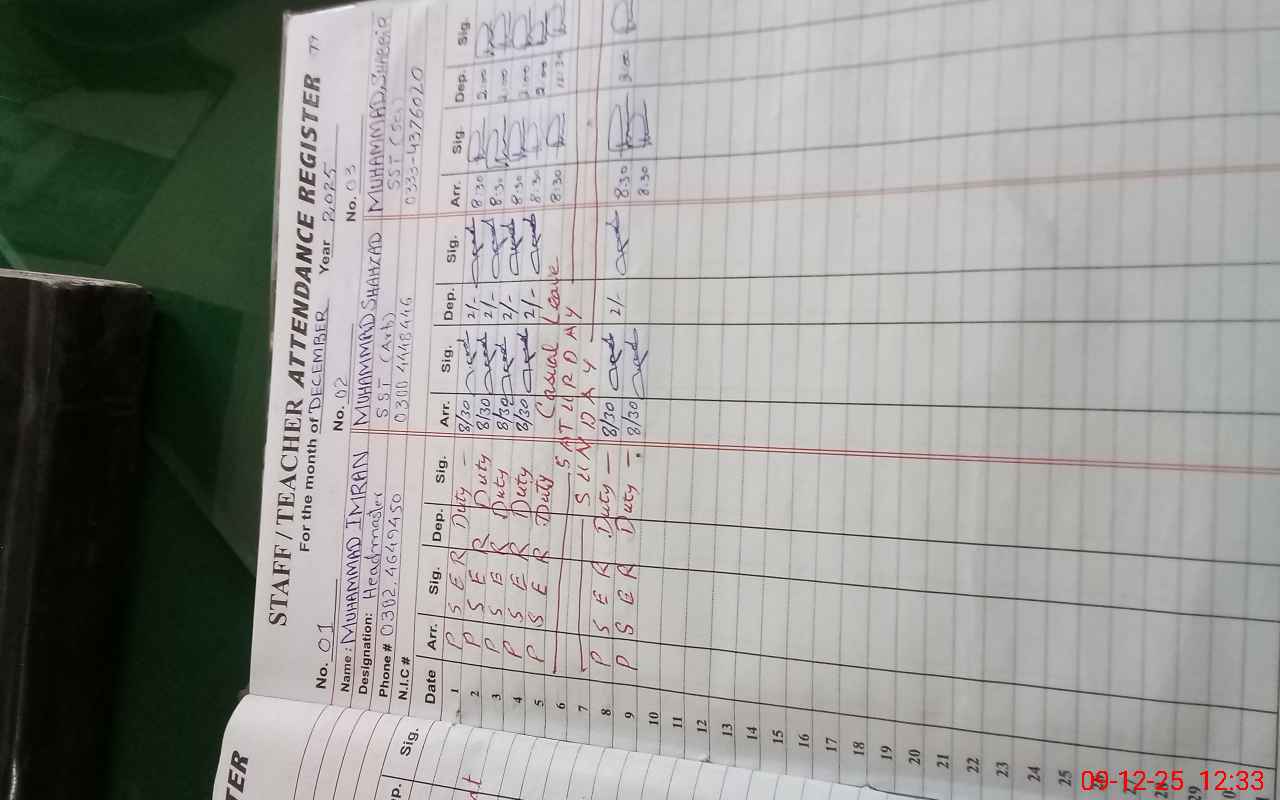 STAFF / TEACHER ATTENDANCE REGISTER 79
For the month of DECEMBER Year 2025
No. 01 No. 02 No. 03
Name: MUHAMMAD IMRAN MUHAMMAD SHAHZAD MUHAMMAD SHABBIR
Designation: Headmaster SST (Art) SST (Sci)
Phone # 0302.4649450 0300 4448446 0333-4376020
N.I.C #
Date Arr. Sig. Dep. Sig. Arr. Sig. Dep. Sig. Arr. Sig. Dep. Sig.
1 P S E R Duty - 8/30 2/- 8:30 2:00
2 P S E R Duty 8/30 2/- 8:30 2:00
3 P S E R Duty 8/30 2/- 8:30 2:00
4 P S E R Duty 8/30 2/- 8:30 2:00
5 P S E R Duty Casual Leave 8:30 12:30
6 SATURDAY
7 SUNDAY
8 P S E R Duty - 8/30 2/- 8:30 2:00
9 P S E R Duty - 8/30 8:30
10
11
12
13
14
15
16
17
18
19
20
21
22
23
24
25
29
Sig.
TER
09-12-25 12:33